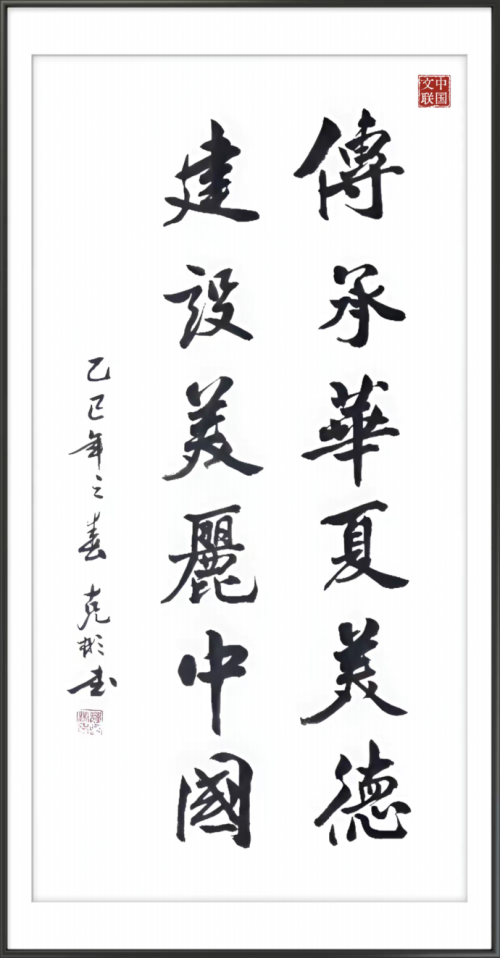 中国文联
傳承華夏美德
建設美麗中國
乙巳年之春 克彬书